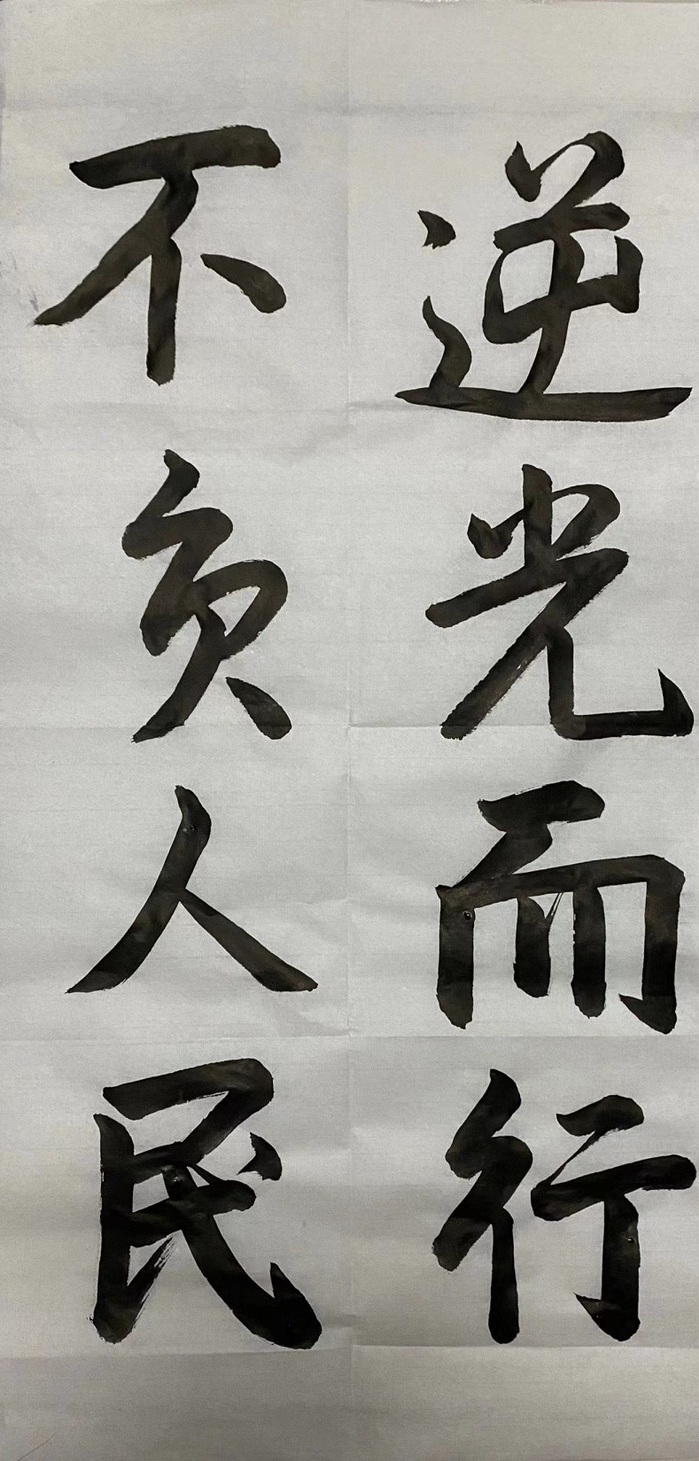 逆光而行
不负人民